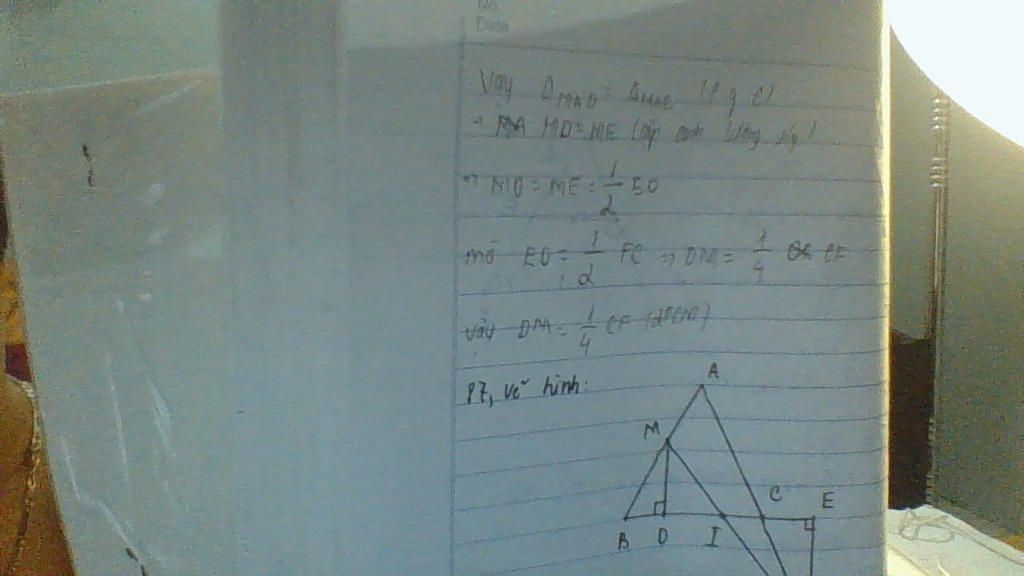 No.
Date
Vậy Δ MAD = Δ MAE (c g c)
⇒ MD = ME (cặp cạnh tương ứng)
⇒ MD = ME = 1/2 ED
mà ED = 1/2 FC ⇒ DM = 1/4 CF
vậy DM = 1/4 CF (đpcm)
P7, vẽ hình:
A
M
C E
B D I